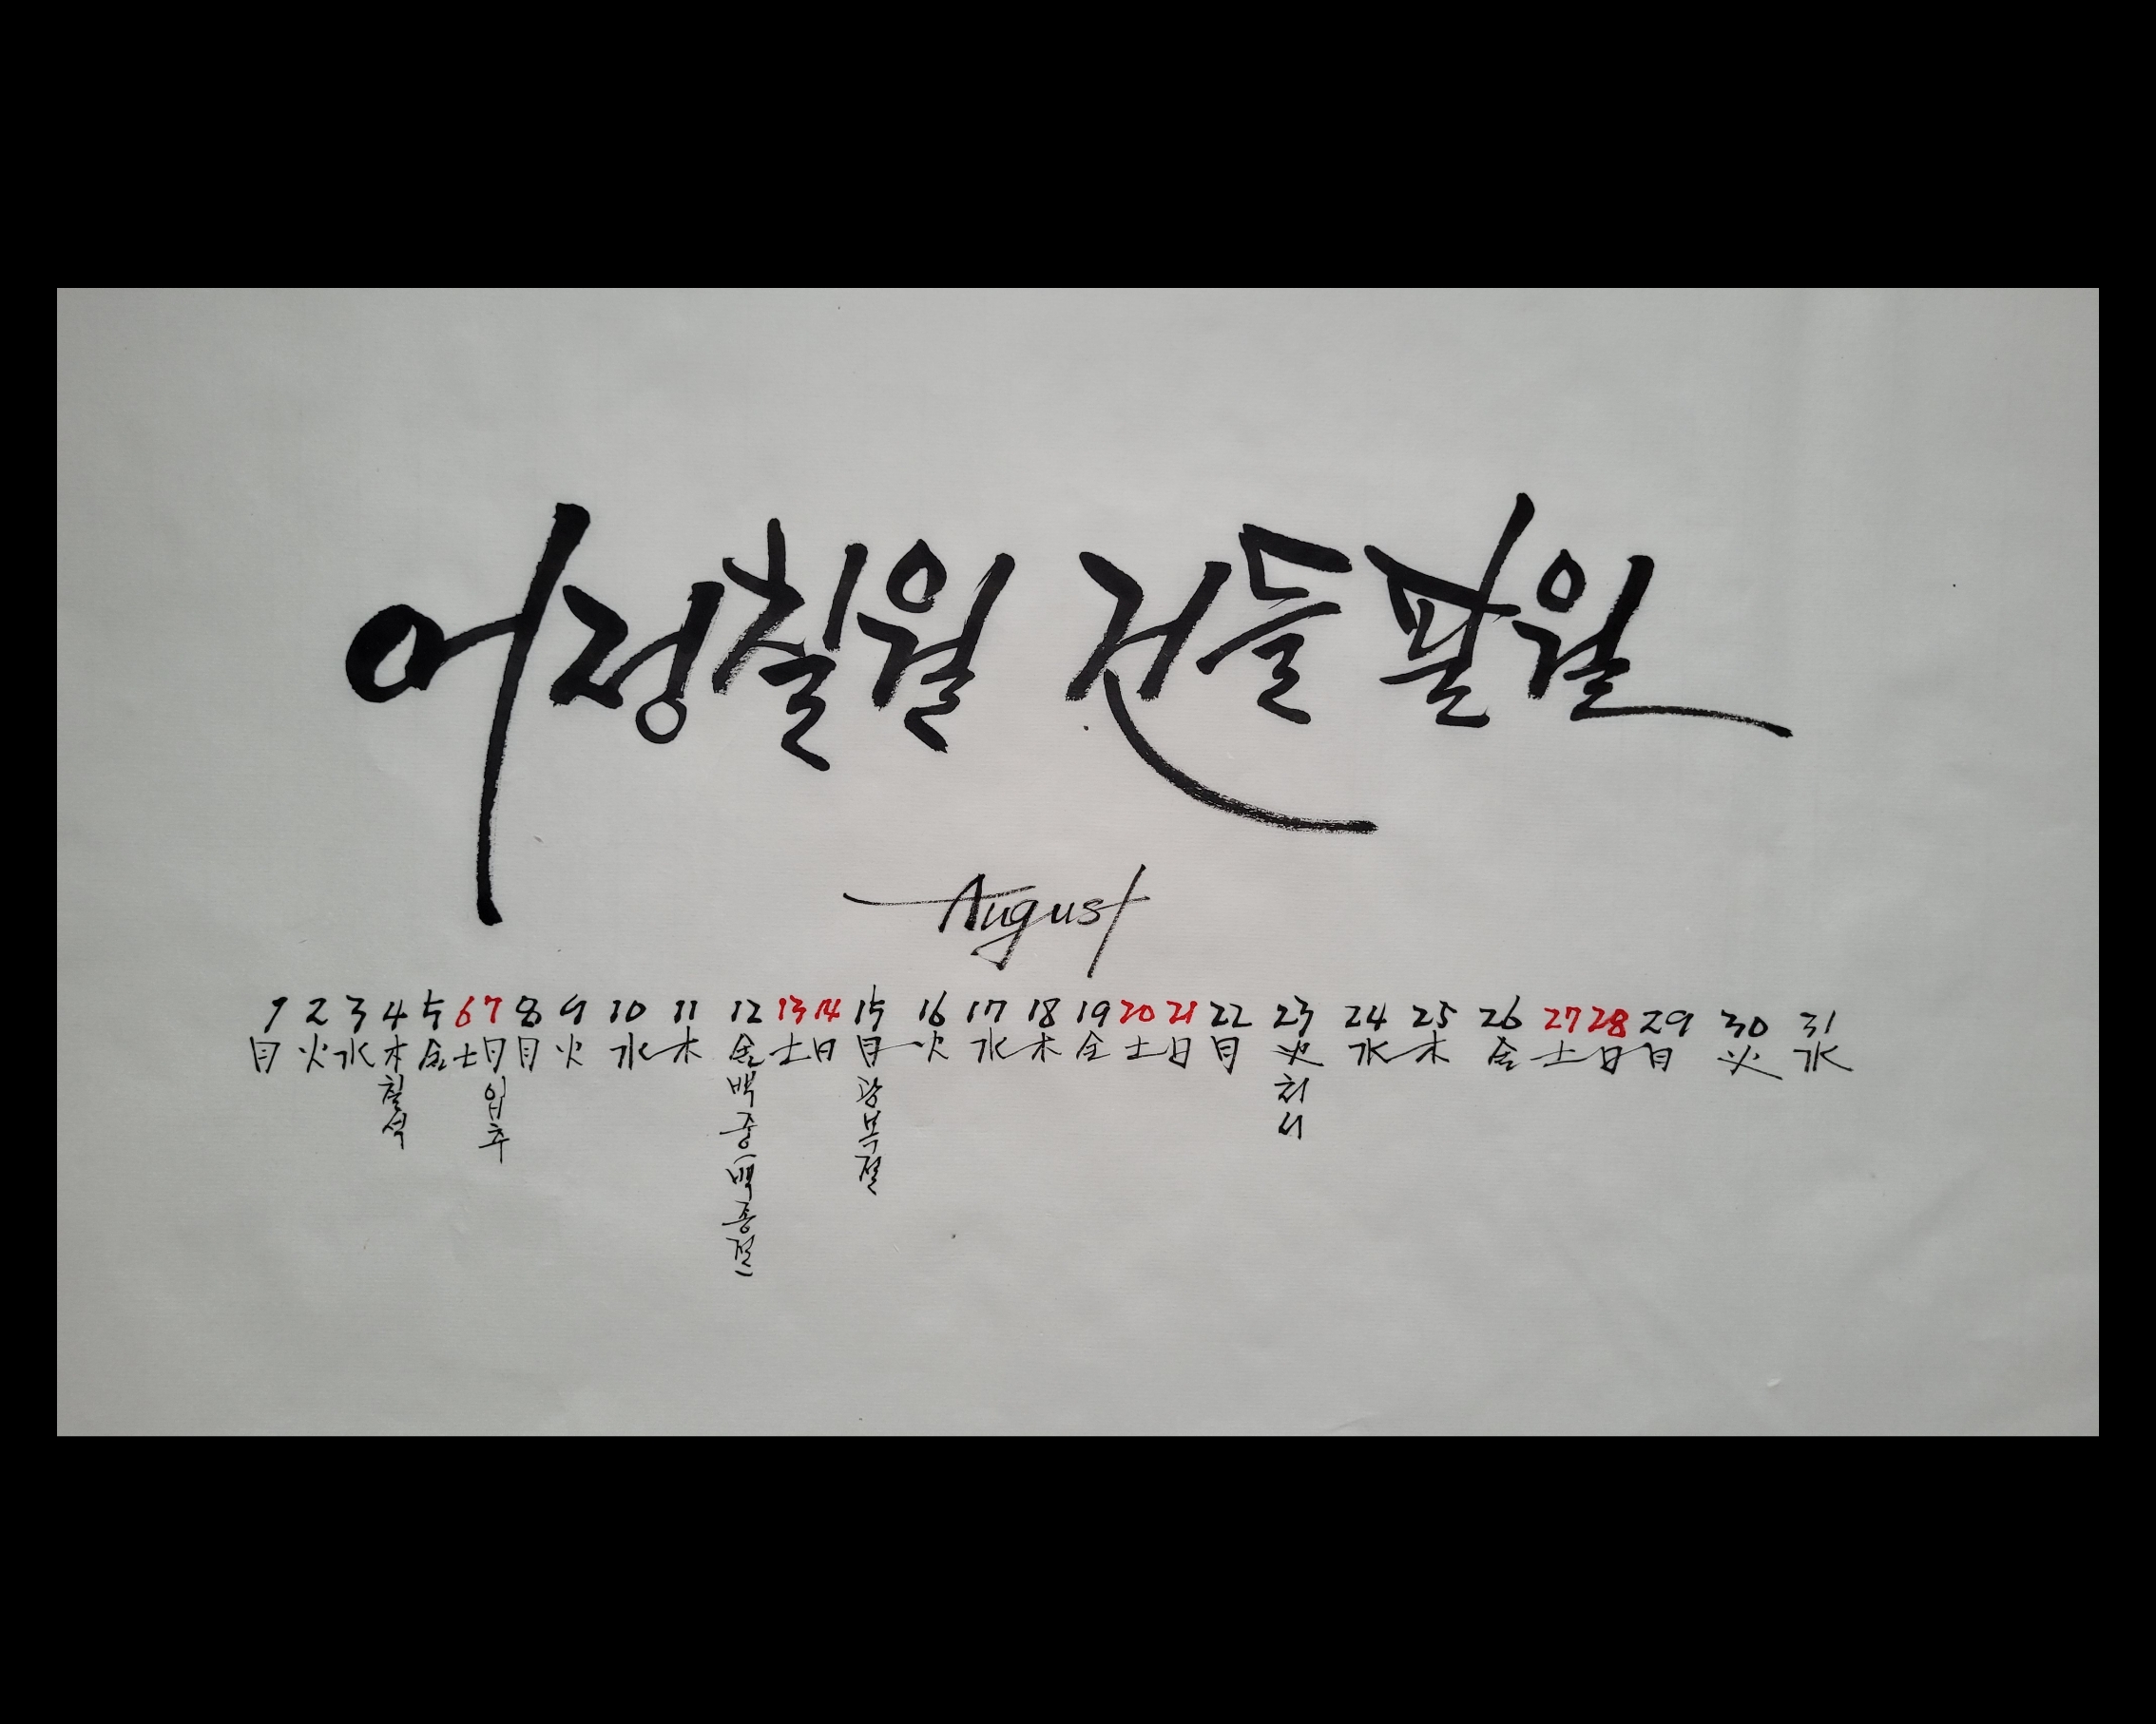 어정칠월 건들팔월
August
1 2 3 4 5 6 7 8 9 10 11 12 13 14 15 16 17 18 19 20 21 22 23 24 25 26 27 28 29 30 31
月 火 水 木 金 土 日 月 火 水 木 金 土 日 月 火 水 木 金 土 日 月 火 水 木 金 土 日 月 火 水
칠석
입추
백중(백종절)
광복절
처서